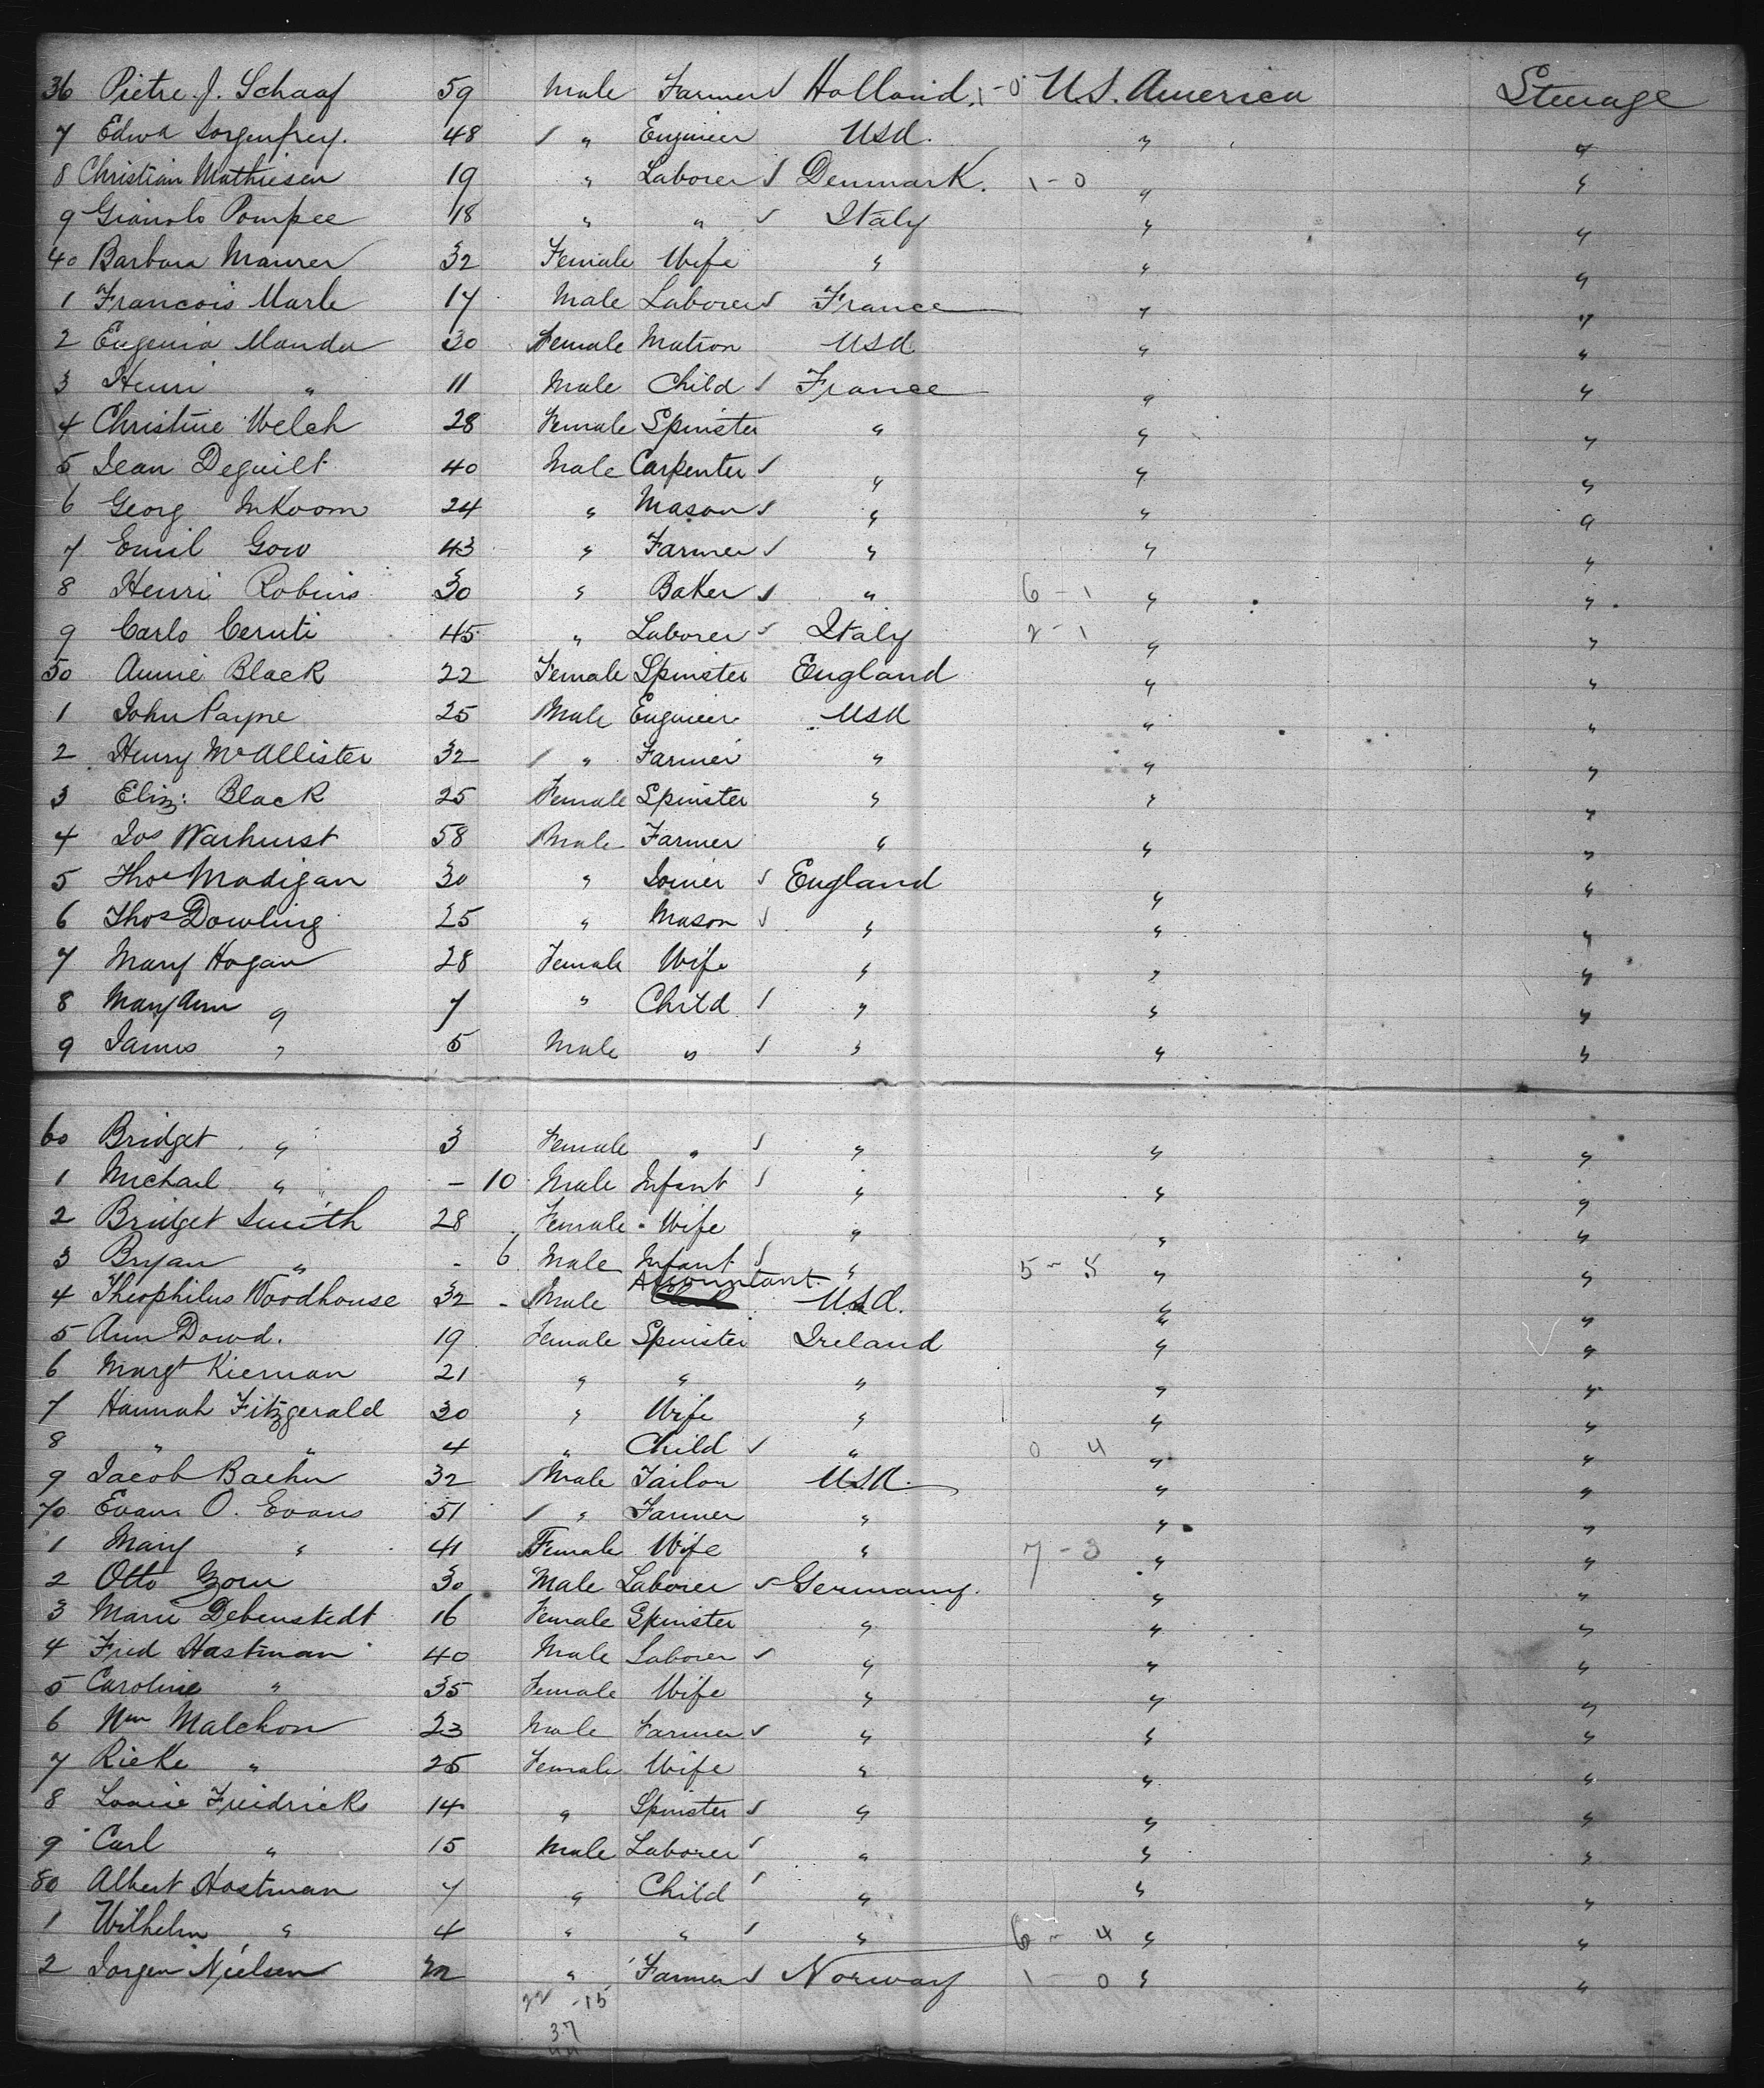 36 Pietre J. Schaaf 59 Male Farmer Holland. 1-0 U.S. America Steerage
7 Edwd Sorgenfrey. 48 " Engineer USA. " "
8 Christian Mathiesen 19 " Laborer Denmark. 1-0 " "
9 Pompee 18 " " Italy " "
40 Barbara Maurer 32 Female Wife " " "
1 Francois Marle 17 Male Laborer France " "
2 Eugenia Mandu 30 Female Matron USA " "
3 Henri " 11 Male Child France " "
4 Christine Welch 28 Female Spinster " " "
5 Jean Deguilt 40 Male Carpenter " " "
6 Georg 24 " Mason " " "
7 Emil Gow 43 " Farmer " " "
8 Henri Robins 30 " Baker " 6-1 " "
9 Carlo Ceruti 45 " Laborer Italy 2-1 " "
50 Annie Black 22 Female Spinster England " "
1 John Payne 25 Male Engineer USA " "
2 Henry McAllister 32 " Farmer " " "
3 Eliz: Black 25 Female Spinster " " "
4 Jos Warhurst 58 Male Farmer " " "
5 Thos Madigan 30 " Joiner England " "
6 Thos Dowling 25 " Mason " " "
7 Mary Hogan 28 Female Wife " " "
8 Mary Ann " 7 " Child " " "
9 James " 5 Male " " " "
60 Bridget " 3 Female " " " "
1 Michael " - 10 Male Infant " " "
2 Bridget Smith 28 Female Wife " " "
3 Bryan " - 6 Male Infant " 5-5 " "
4 Theophilus Woodhouse 32 - Male Accountant USA. " "
5 Ann Dowd. 19 Female Spinster Ireland " "
6 Margt Kiernan 21 " " " " "
7 Hannah Fitzgerald 30 " Wife " " "
8 " " 4 " Child " 0 4 " "
9 Jacob Baehn 32 Male Tailor USA. " "
70 Evan O. Evans 51 " Farmer " " "
1 Mary " 41 Female Wife " 7-3 " "
2 Otto Zorn 30 Male Laborer Germany. " "
3 Marie Debenstedt 16 Female Spinster " " "
4 Fred Hastman 40 Male Laborer " " "
5 Caroline " 35 Female Wife " " "
6 Wm Malchon 23 Male Farmer " " "
7 Rieke " 25 Female Wife " " "
8 Freidricks 14 " Spinster " " "
9 Carl " 15 Male Laborer " " "
80 Albert Hastman 7 " Child " " "
1 Wilhelm " 4 " " " 6-4 " "
2 Jorgen Nielsen " Farmer Norway 1-0 " "
22 -15
37